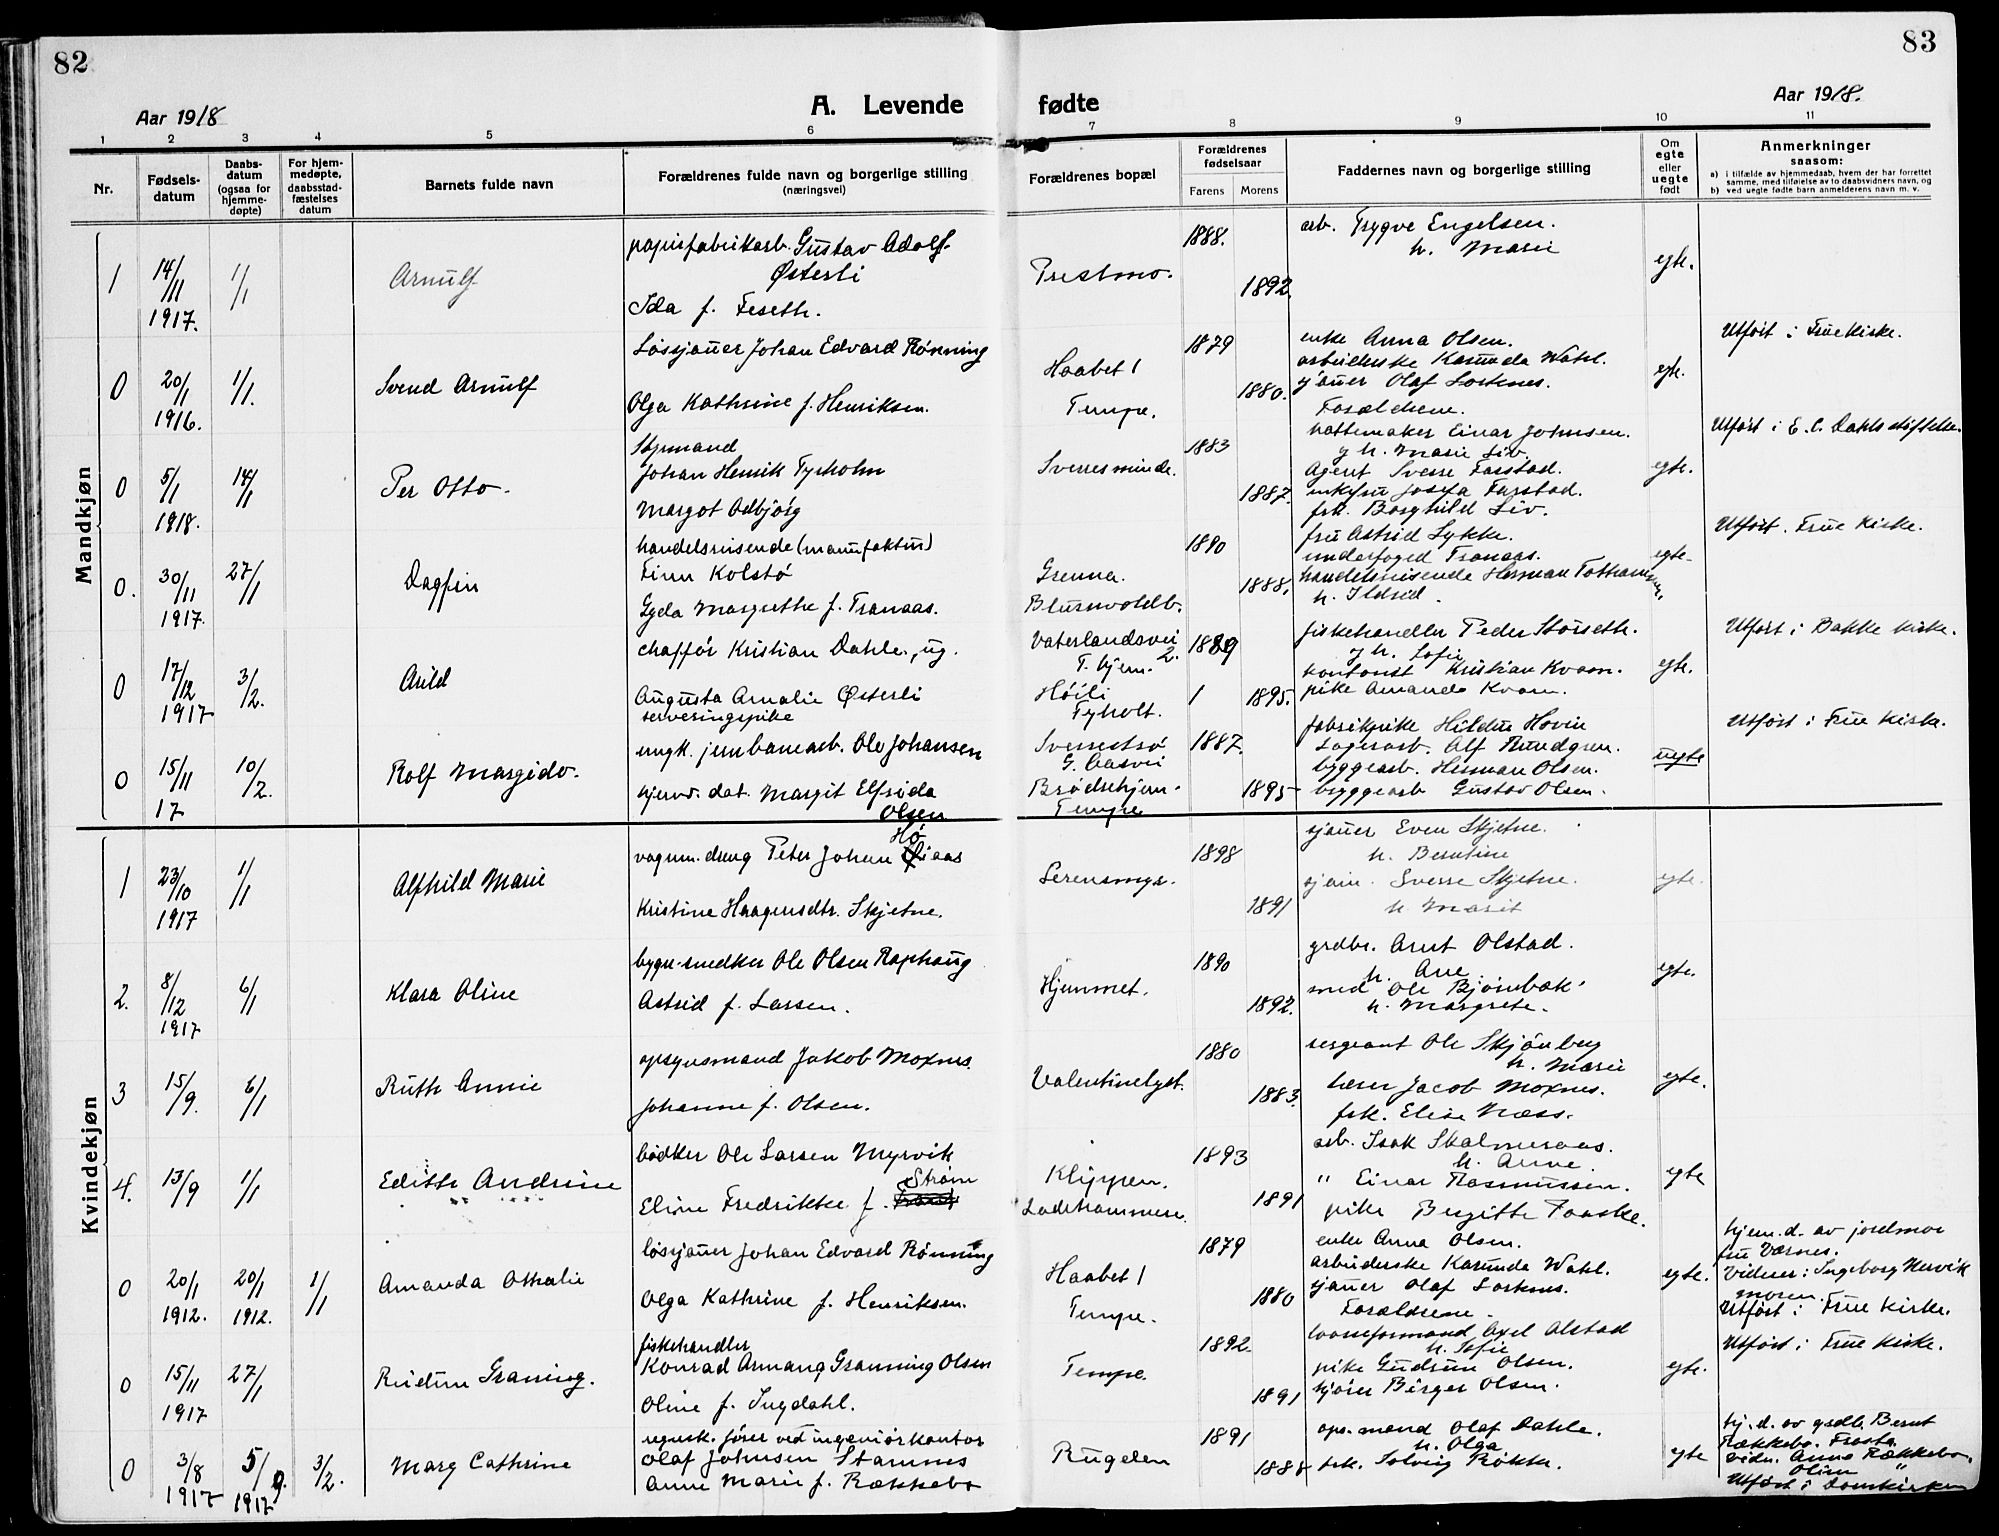 82
83
Aar 1918
A. Levende fødte
Aar 1918.
1 2 3 4 5 6 7 8 9 10 11
Nr.
Fødsels-
datum
Daabs-
datum
(ogsaa for
hjemme-
døpte)
For hjem-
medøpte,
daabsstad-
fæstelses
datum
Barnets fulde navn
Forældrenes fulde navn og borgerlige stilling
(næringsvei)
Forældrenes bopæl
Forældrenes
fødselsaar
Farens Morens
Faddernes navn og borgerlige stilling
Om
egte
eller
uegte
født
Anmerkninger
saasom:
a) i tilfælde av hjemmedaab, hvem der har forrettet
samme, med tilføielse av to daabsvidners navn, og
b) ved uegte fødte barn anmelderens navn m. v.
Mandkjøn
1
14/11
1917.
1/1
Arnulf
papirfabrikarb. Gustav Adolf
Østerli
Ida f. Feseth.
Prestmo.
1888.
1892.
arb. Trygve Engelsen.
h. Marie
egte.
0
20/1
1916.
1/1.
Svend Arnulf
Løssjauer Johan Edvard Rønning
Olga Kathrine f. Henriksen.
Haabet 1
Tempe.
1879
1880.
enke Anna Olsen.
arbeiderske Karunda Wahl.
sjauer Olaf Lorknes.
Forældrene.
egte.
Utført i Frue Kirke.
0
5/1
1918.
14/1
Per Otto.
Styrmand
Johan Henrik Tyrholm
Margot Odbjørg
Sverresminde.
1883
1887.
hattemaker Einar Johnsen.
g h. Marie Liv.
Agent Sverre Farstad.
enkefru Josefa Farstad.
frk. Borghild Liv.
egte.
Utført i E. C. Dahls stiftelse.
0.
30/11
1917.
27/1
Dagfin
handelsreisende (manufaktur)
Finn Kolstø
Gyda Margrethe f. Tranaas.
Grenna.
Blusuvoldb.
1880
1888.
fru Astrid Lykke.
underfoged Tranaas.
handelsreisende Herman Tottrammer,
h. Ildrid.
egte.
Utført. Frue Kirke.
0
17/12
1917
3/2.
Arild
chaffør Kristian Dahle, ug.
Augusta Amalie Østerli
serveringspike
Vaterlandsvei
2.
T. hjem.
Høili
Tyholt.
1889
1
1895.
fiskehandler Peder Storseth.
g h. Sofie
kontorist Kristian Kvam.
pike Amanda Kvam.
egte.
Utført i Bakke Kirke.
0
15/11
17
10/2.
Rolf Margido.
ungk. jernbanearb. Ole Johansen
hjemv. dat. Margit Elfrida
Olsen
Sverrestrø
G. Aasvei
Brødrehjem.
Tempe
1887.
1895
fabrikpike Hildur Hovin
Lagerarb. Alf Rundgren.
byggearb. Herman Olsen.
byggearb Gustav Olsen.
uegte
Utført i Frue Kirke.
Kvindekjøn
1
23/10
1917
1/1
Alfhild Marie
vognm. dreng Peter Johan Høiaas
Kristine Haagensdtr. Skjetne.
Serensmyr.
1898
1891
sjauer Even Skjetne.
h. Berntine
sjaur. Sverre Skjetne.
h. Marit
egte.
2.
8/12
1917
6/1
Klara Oline
bygn.snedker Ole Olsen Raphaug
Astrid f. Larsen.
Hjemmet.
1890
1892.
grdbr. Arnt Olstad.
h. Ane
smed Ole Bjørnbæk.
h. Margrete.
egte.
3
15/9.
6/1
Ruth Annie
opsynsmand Jakob Moxnes.
Johanne f. Olsen.
Valentinelyst.
1880
1883.
sergeant Ole Skjønberg
h. Marie
lærer Jacob Moxnes.
frk. Elise Næss.
egte.
4.
13/9
1/1
Edith Andrine
bødker Ole Larsen Myrvik
Strøm
Eline Fredrikke f.
Klippen.
Ladehammeren.
1893
1891
arb. Isak Skalmeraas.
h. Anne.
" Einar Rasmussen.
pike Bergitte Faaske.
egte
0
20/1
1912.
20/1
1912.
1/1
Amanda Othalie
løssjauer Johan Edvard Rønning
Olga Kathrine f. Henriksen.
Haabet 1
Tempe.
1879
1880
enke Anna Olsen.
arbeiderske Karunda Wahl.
sjauer Olaf Lorknes.
Forældrene.
egte.
hjem.d. av jordmor
fru Værnes.
Vidner: Ingeborg Nervik
moren.
Utført i Frue Kirke.
0
15/11
1917
27/1
Reidun Graning.
fiskehandler
Konrad Armang Granning Olsen
Oline f. Ingdahl.
Tempe.
1892.
1891
losseformand Axel Alstad
h. Sofie
pike Gudrun Olsen.
kjører Birger Olsen.
egte.
Utført i Frue Kirke.
0
3/8
1917
5/9.
1917
3/2.
Mary Cathrine
regnsk. fører ved ingeniørkontor
Olaf Johnsen Stamnes
Anne Marie f. Rækkebo
Rugelen
1891
1888
ops.mand Olaf Dahle.
h. Olga
frk. Solveig Røkke.
egte
hj. d. av grdb. Bernt
Rækkebo. Frosta.
vidn. Anna Rækkebo.
Oline "
Utført i Domkirken